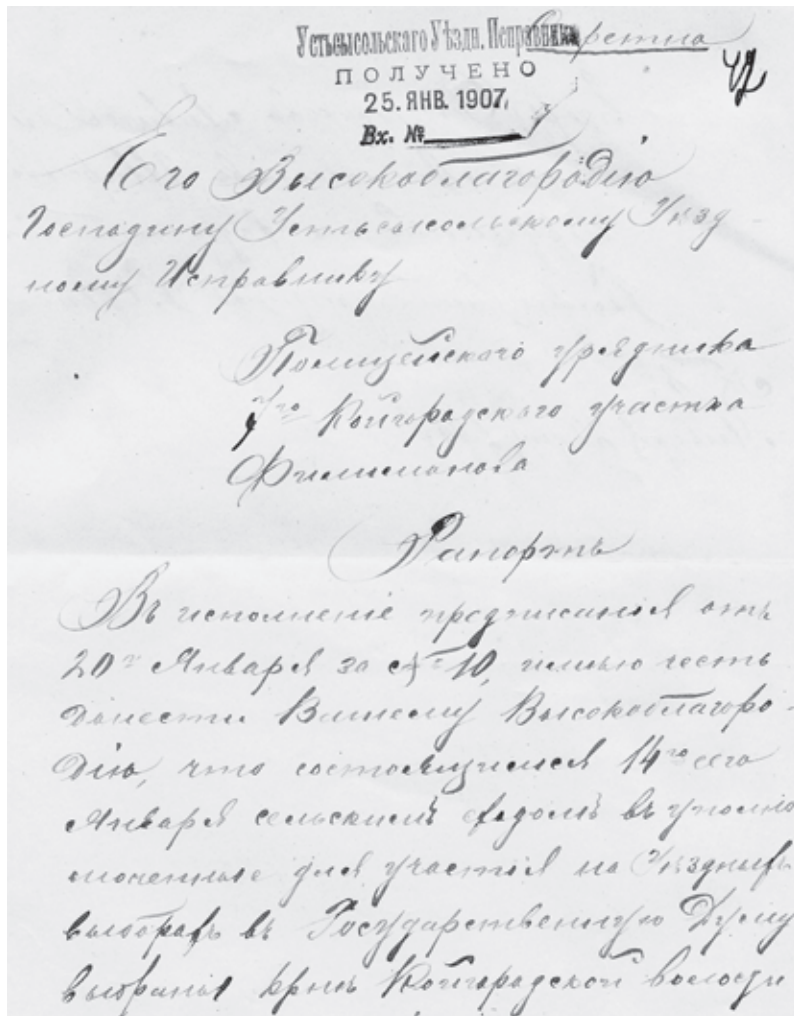 Устьсысольскаго Уѣздн. Исправника
Секретно
ПОЛУЧЕНО
42
25. ЯНВ. 1907.
Вх. №
Его Высокоблагородію
Господину Устьсысольскому Уѣзд-
ному Исправнику
Полицейскаго урядника
7го Койгородскаго участка
Филимонова
Рапортъ
Въ исполненіе предписанія отъ
20го Января за № 10, имѣю честь
донести Вашему Высокоблагоро-
дію, что состоявшимся 14го сего
Января сельскимъ сходомъ въ уполно
моченные для участія на Уѣздныхъ
выборахъ въ Государственную Думу
выбраны крнъ Койгородской волости